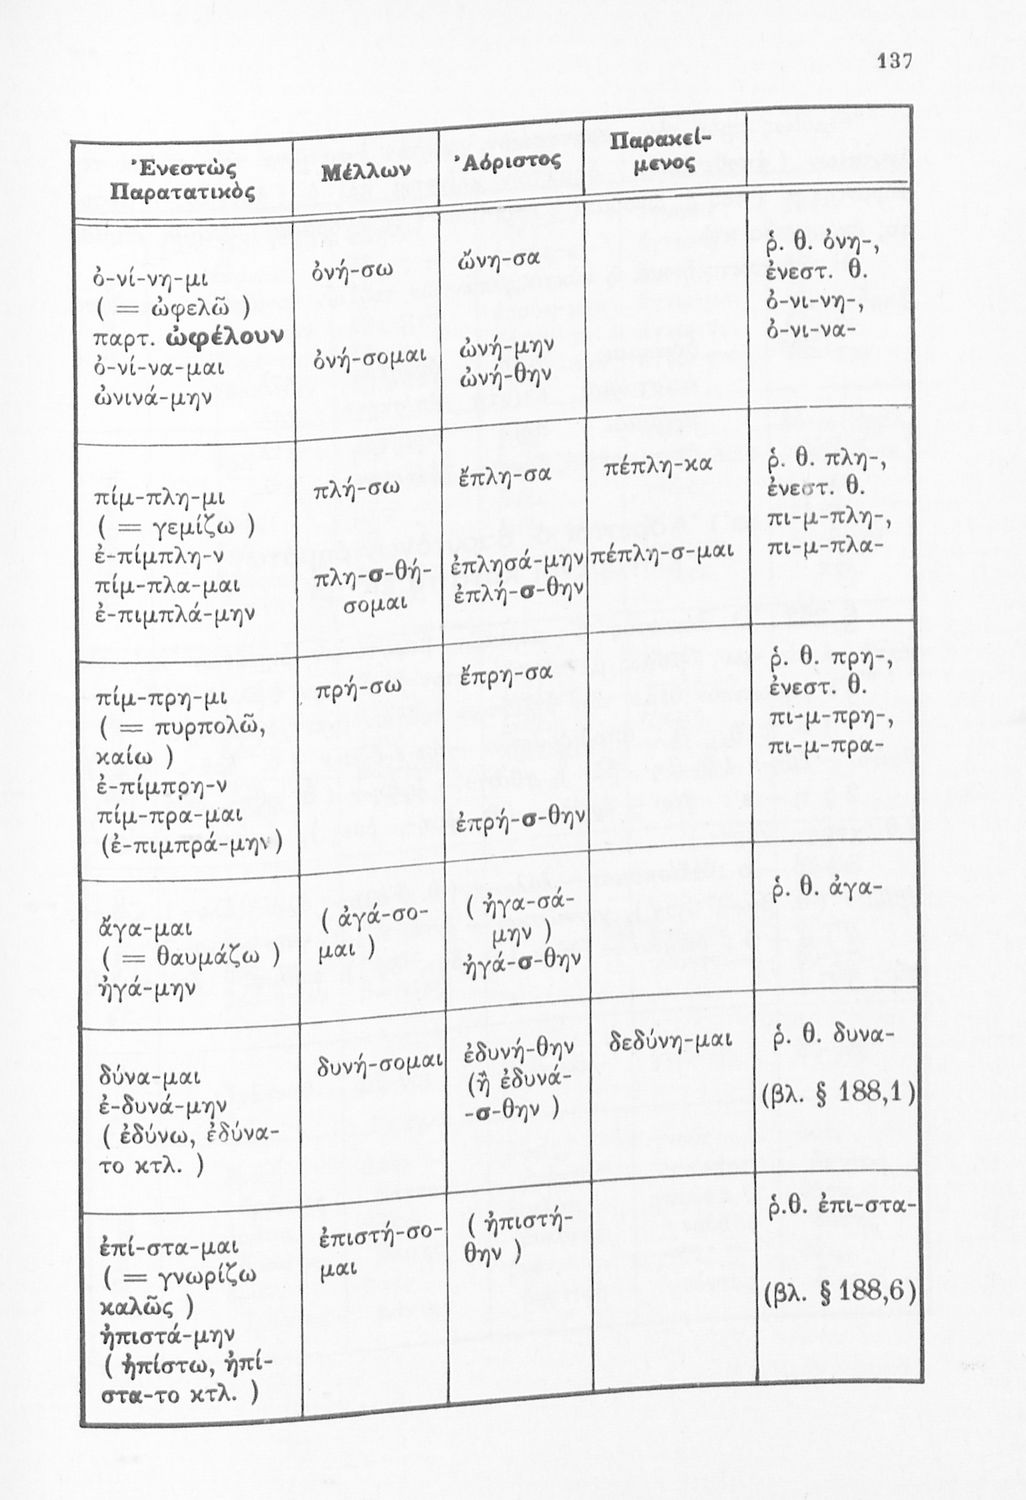 137
Ἐνεστὼς
Παρατατικὸς
Μέλλων
Ἀόριστος
Παρακεί-
μενος
ὀ-νί-νη-μι
( = ὠφελῶ )
παρτ. ὠφέλουν
ὀ-νί-να-μαι
ὠνινά-μην
ὀνή-σω
ὀνή-σομαι
ὤνη-σα
ὠνή-μην
ὠνή-θην
ῥ. θ. ὀνη-,
ἐνεστ. θ.
ὀ-νι-νη-,
ὀ-νι-να-
πίμ-πλη-μι
( = γεμίζω )
ἐ-πίμπλη-ν
πίμ-πλα-μαι
ἐ-πιμπλά-μην
πλή-σω
πλη-σ-θή-
σομαι
ἔπλη-σα
ἐπλησά-μην
ἐπλή-σ-θην
πέπλη-κα
πέπλη-σ-μαι
ῥ. θ. πλη-,
ἐνεστ. θ.
πι-μ-πλη-,
πι-μ-πλα-
πίμ-πρη-μι
( = πυρπολῶ,
καίω )
ἐ-πίμπρη-ν
πίμ-πρα-μαι
(ἐ-πιμπρά-μην)
πρή-σω
ἔπρη-σα
ἐπρή-σ-θην
ῥ. θ. πρη-,
ἐνεστ. θ.
πι-μ-πρη-,
πι-μ-πρα-
ἄγα-μαι
( = θαυμάζω )
ἠγά-μην
( ἀγά-σο-
μαι )
( ἠγα-σά-
μην )
ἠγά-σ-θην
ῥ. θ. ἀγα-
δύνα-μαι
ἐ-δυνά-μην
( ἐδύνω, ἐδύνα-
το κτλ. )
δυνή-σομαι
ἐδυνή-θην
(ἢ ἐδυνά-
-σ-θην )
δεδύνη-μαι
ῥ. θ. δυνα-
(βλ. § 188,1)
ἐπί-στα-μαι
( = γνωρίζω
καλῶς )
ἠπιστά-μην
( ἠπίστω, ἠπί-
στα-το κτλ. )
ἐπιστή-σο-
μαι
( ἠπιστή-
θην )
ῥ.θ. ἐπι-στα-
(βλ. § 188,6)